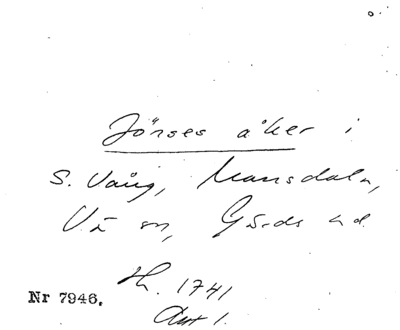 Jönses åker i
S. Vång, Mansdala,
Vä sn, Gärds hd.
Hh. 1741
Akt 1.
Nr 7946.